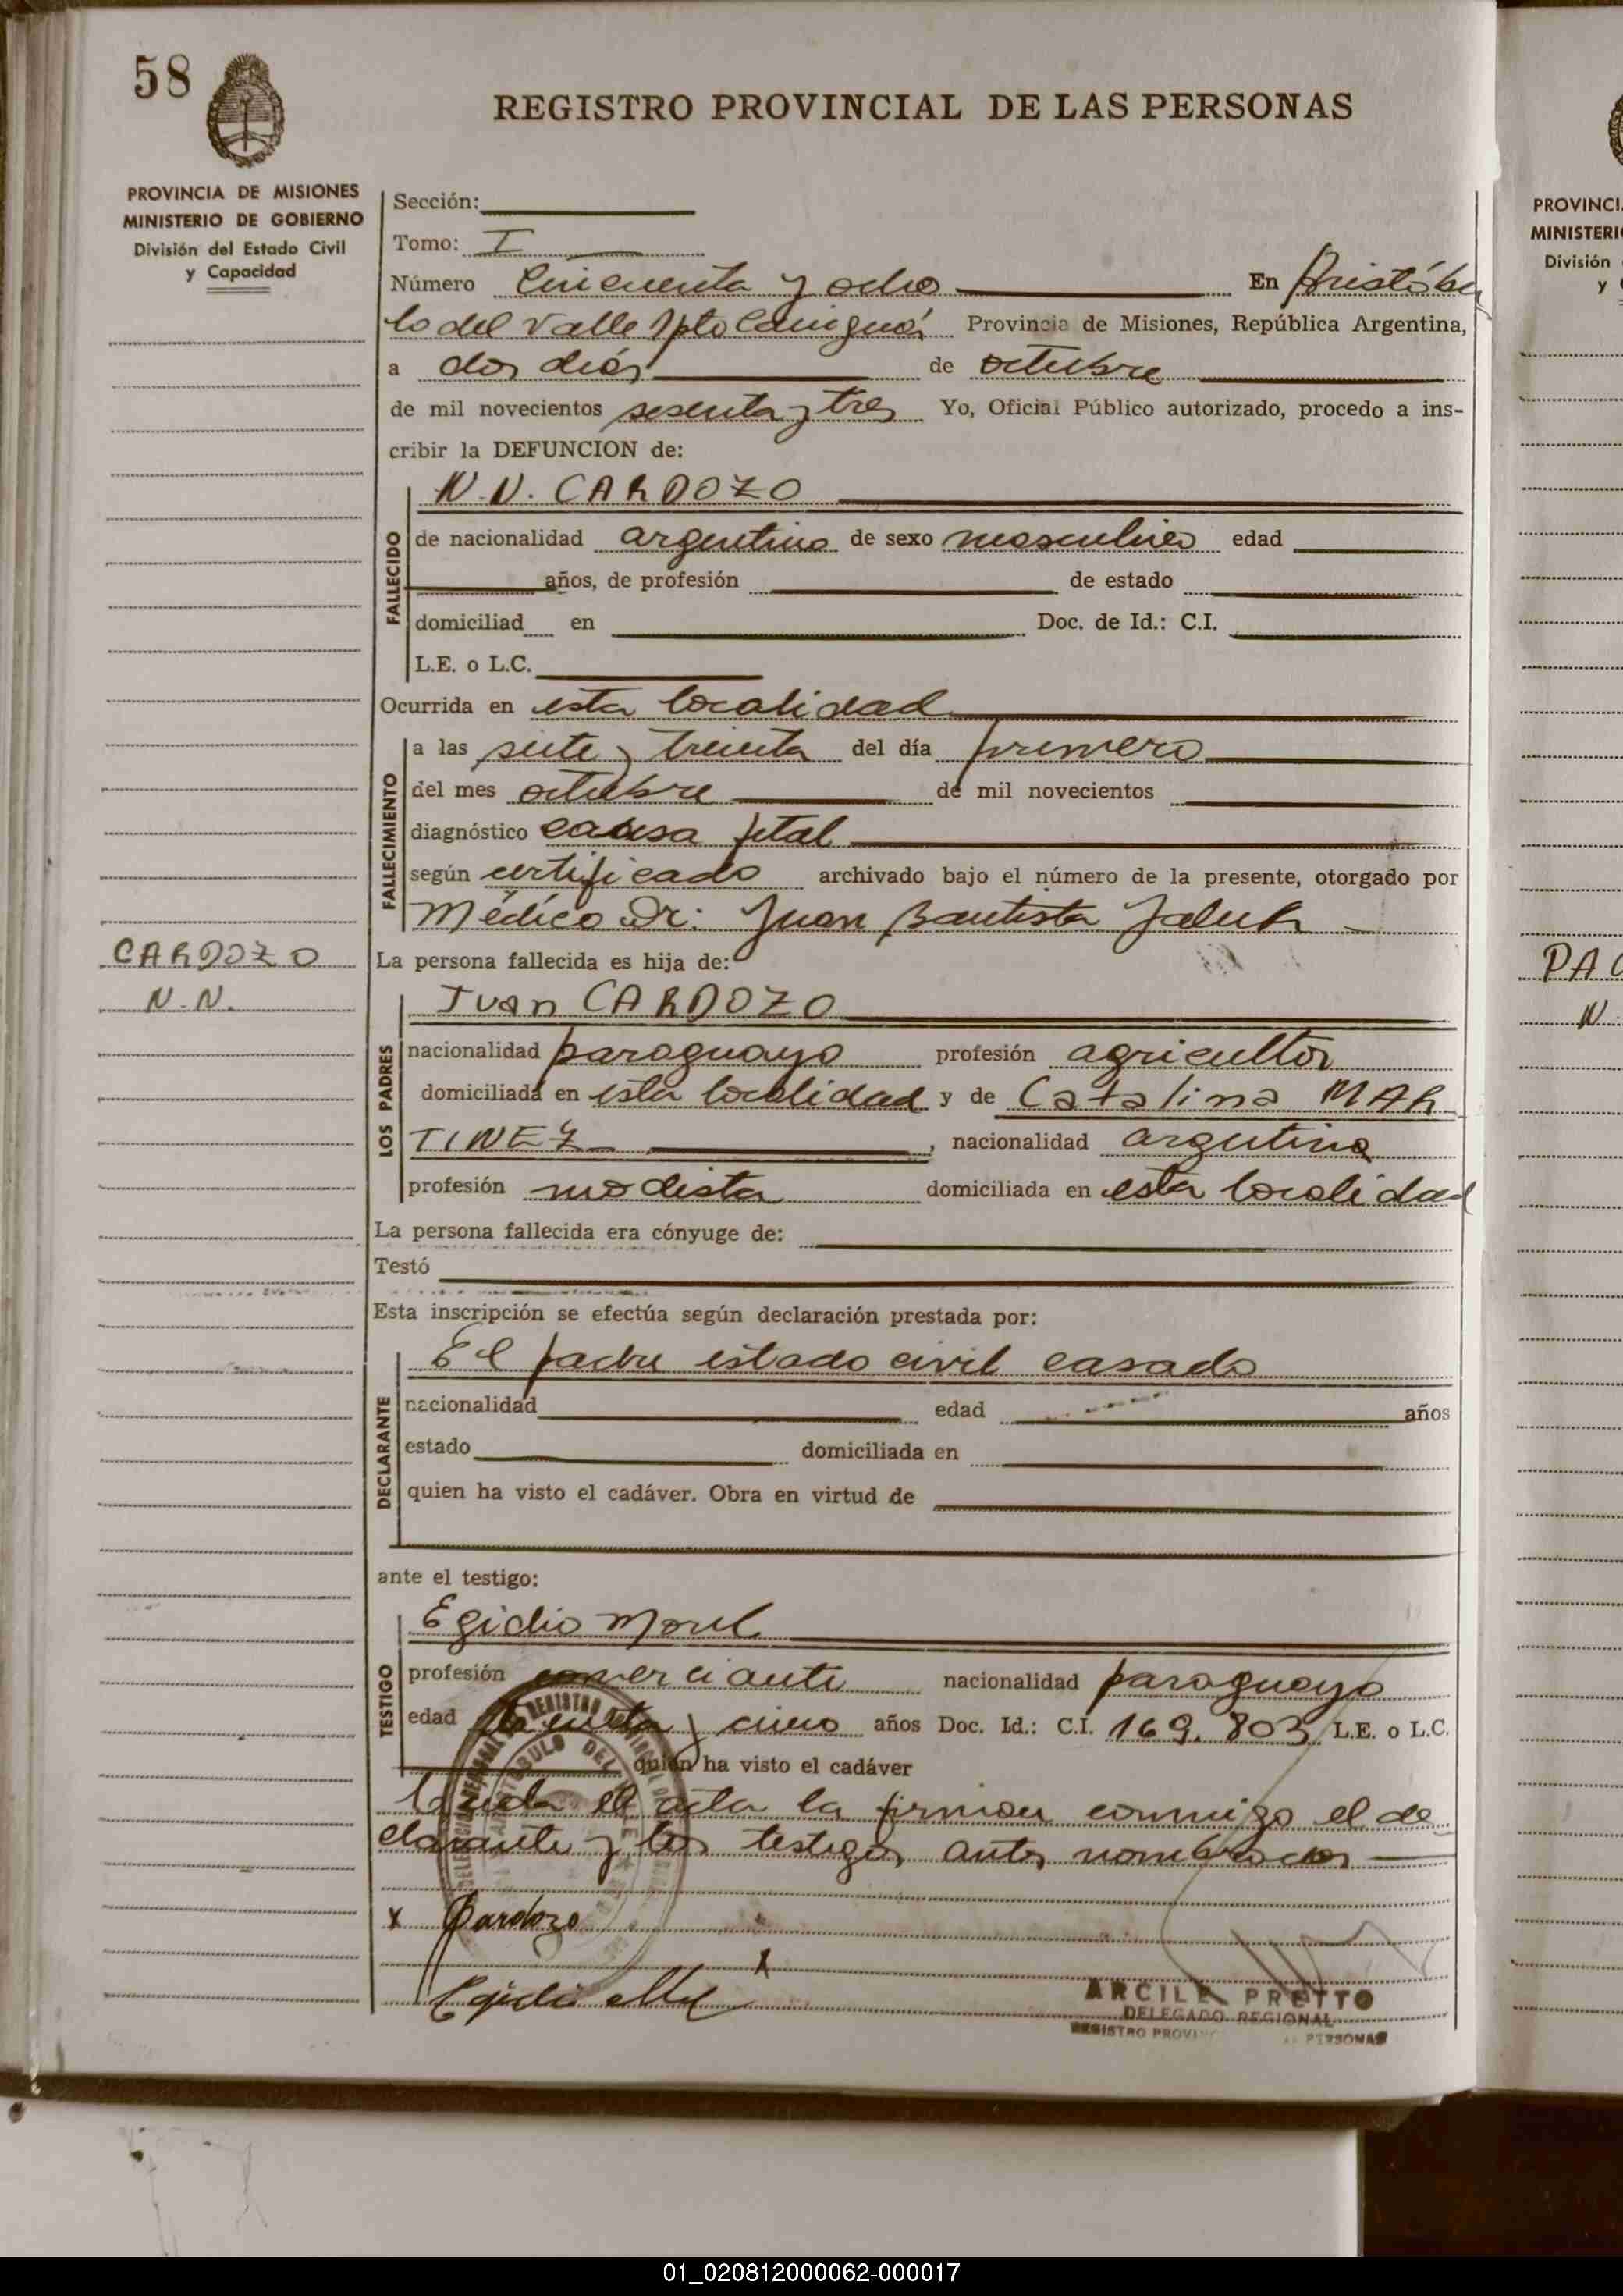 58
REGISTRO PROVINCIAL DE LAS PERSONAS
PROVINCIA DE MISIONES
MINISTERIO DE GOBIERNO
División del Estado Civil
y Capacidad
Sección:
Tomo: I
Número Cincuenta y ocho En Aristóbu
lo del Valle Dpto Cainguás Provincia de Misiones, República Argentina,
a dos días de octubre
de mil novecientos sesenta y tres Yo, Oficial Público autorizado, procedo a ins-
cribir la DEFUNCION de:
FALLECIDO
N.N. CARDOZO
de nacionalidad argentino de sexo masculino edad
años, de profesión de estado
domiciliad en Doc. de Id.: C.I.
L.E. o L.C.
Ocurrida en esta localidad
FALLECIMIENTO
a las siete y treinta del día primero
del mes octubre de mil novecientos
diagnóstico causa fetal
según certificado archivado bajo el número de la presente, otorgado por
Médico Dr: Juan Bautista
CARDOZO
N.N.
La persona fallecida es hija de:
LOS PADRES
Juan CARDOZO
nacionalidad paraguayo profesión agricultor
domiciliada en esta localidad y de Catalina MAR
TINEZ, nacionalidad argentina
profesión modista domiciliada en esta localidad
La persona fallecida era cónyuge de:
Testó
Esta inscripción se efectúa según declaración prestada por:
DECLARANTE
El padre estado civil casado
nacionalidad edad años
estado domiciliada en
quien ha visto el cadáver. Obra en virtud de
ante el testigo:
TESTIGO
Egidio Morel
profesión comerciante nacionalidad paraguayo
edad y cinco años Doc. Id.: C.I. 169.803 L.E. o L.C.
quien ha visto el cadáver
Leida el acta la firman conmigo el de
clarante y los testigos antes nombrados
x Cardozo
x
Egidio
ARCILE PRETTO
DELEGADO REGIONAL
REGISTRO PROVINC PERSONAS
PROVINCI
MINISTERI
División
y
N
01_020812000062-000017